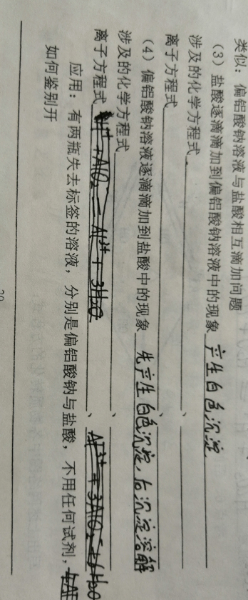 类似：偏铝酸钠溶液与盐酸相互滴加问题
（3）盐酸逐滴滴加到偏铝酸钠溶液中的现象 产生白色沉淀
涉及的化学方程式 、
离子方程式 、
（4）偏铝酸钠溶液逐滴滴加到盐酸中的现象 先产生白色沉淀，后沉淀溶解
涉及的化学方程式 、
离子方程式 、
应用：有两瓶失去标签的溶液，分别是偏铝酸钠与盐酸，不用任何试剂，
如何鉴别开